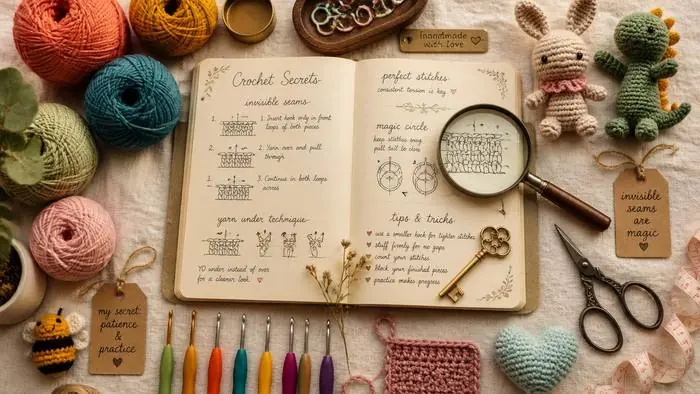 handmade
with love
Crochet Secrets
invisible seams
1. 1. Insert hook only in front
loops of both pieces
2. 2. Yarn over and pull
through
3. 3. Continue in both loops
across
yarn under technique
YO under instead of over
for a cleaner look.
perfect stitches
consistent tension is key
magic circle
keep stitches snug
pull tail to close
tips & tricks
use a smaller hook for tighter stitches
stuff firmly for no gaps
count your stitches
block your finished pieces
practice makes progress
invisible
seams
are
magic
my secret:
patience
&
practice